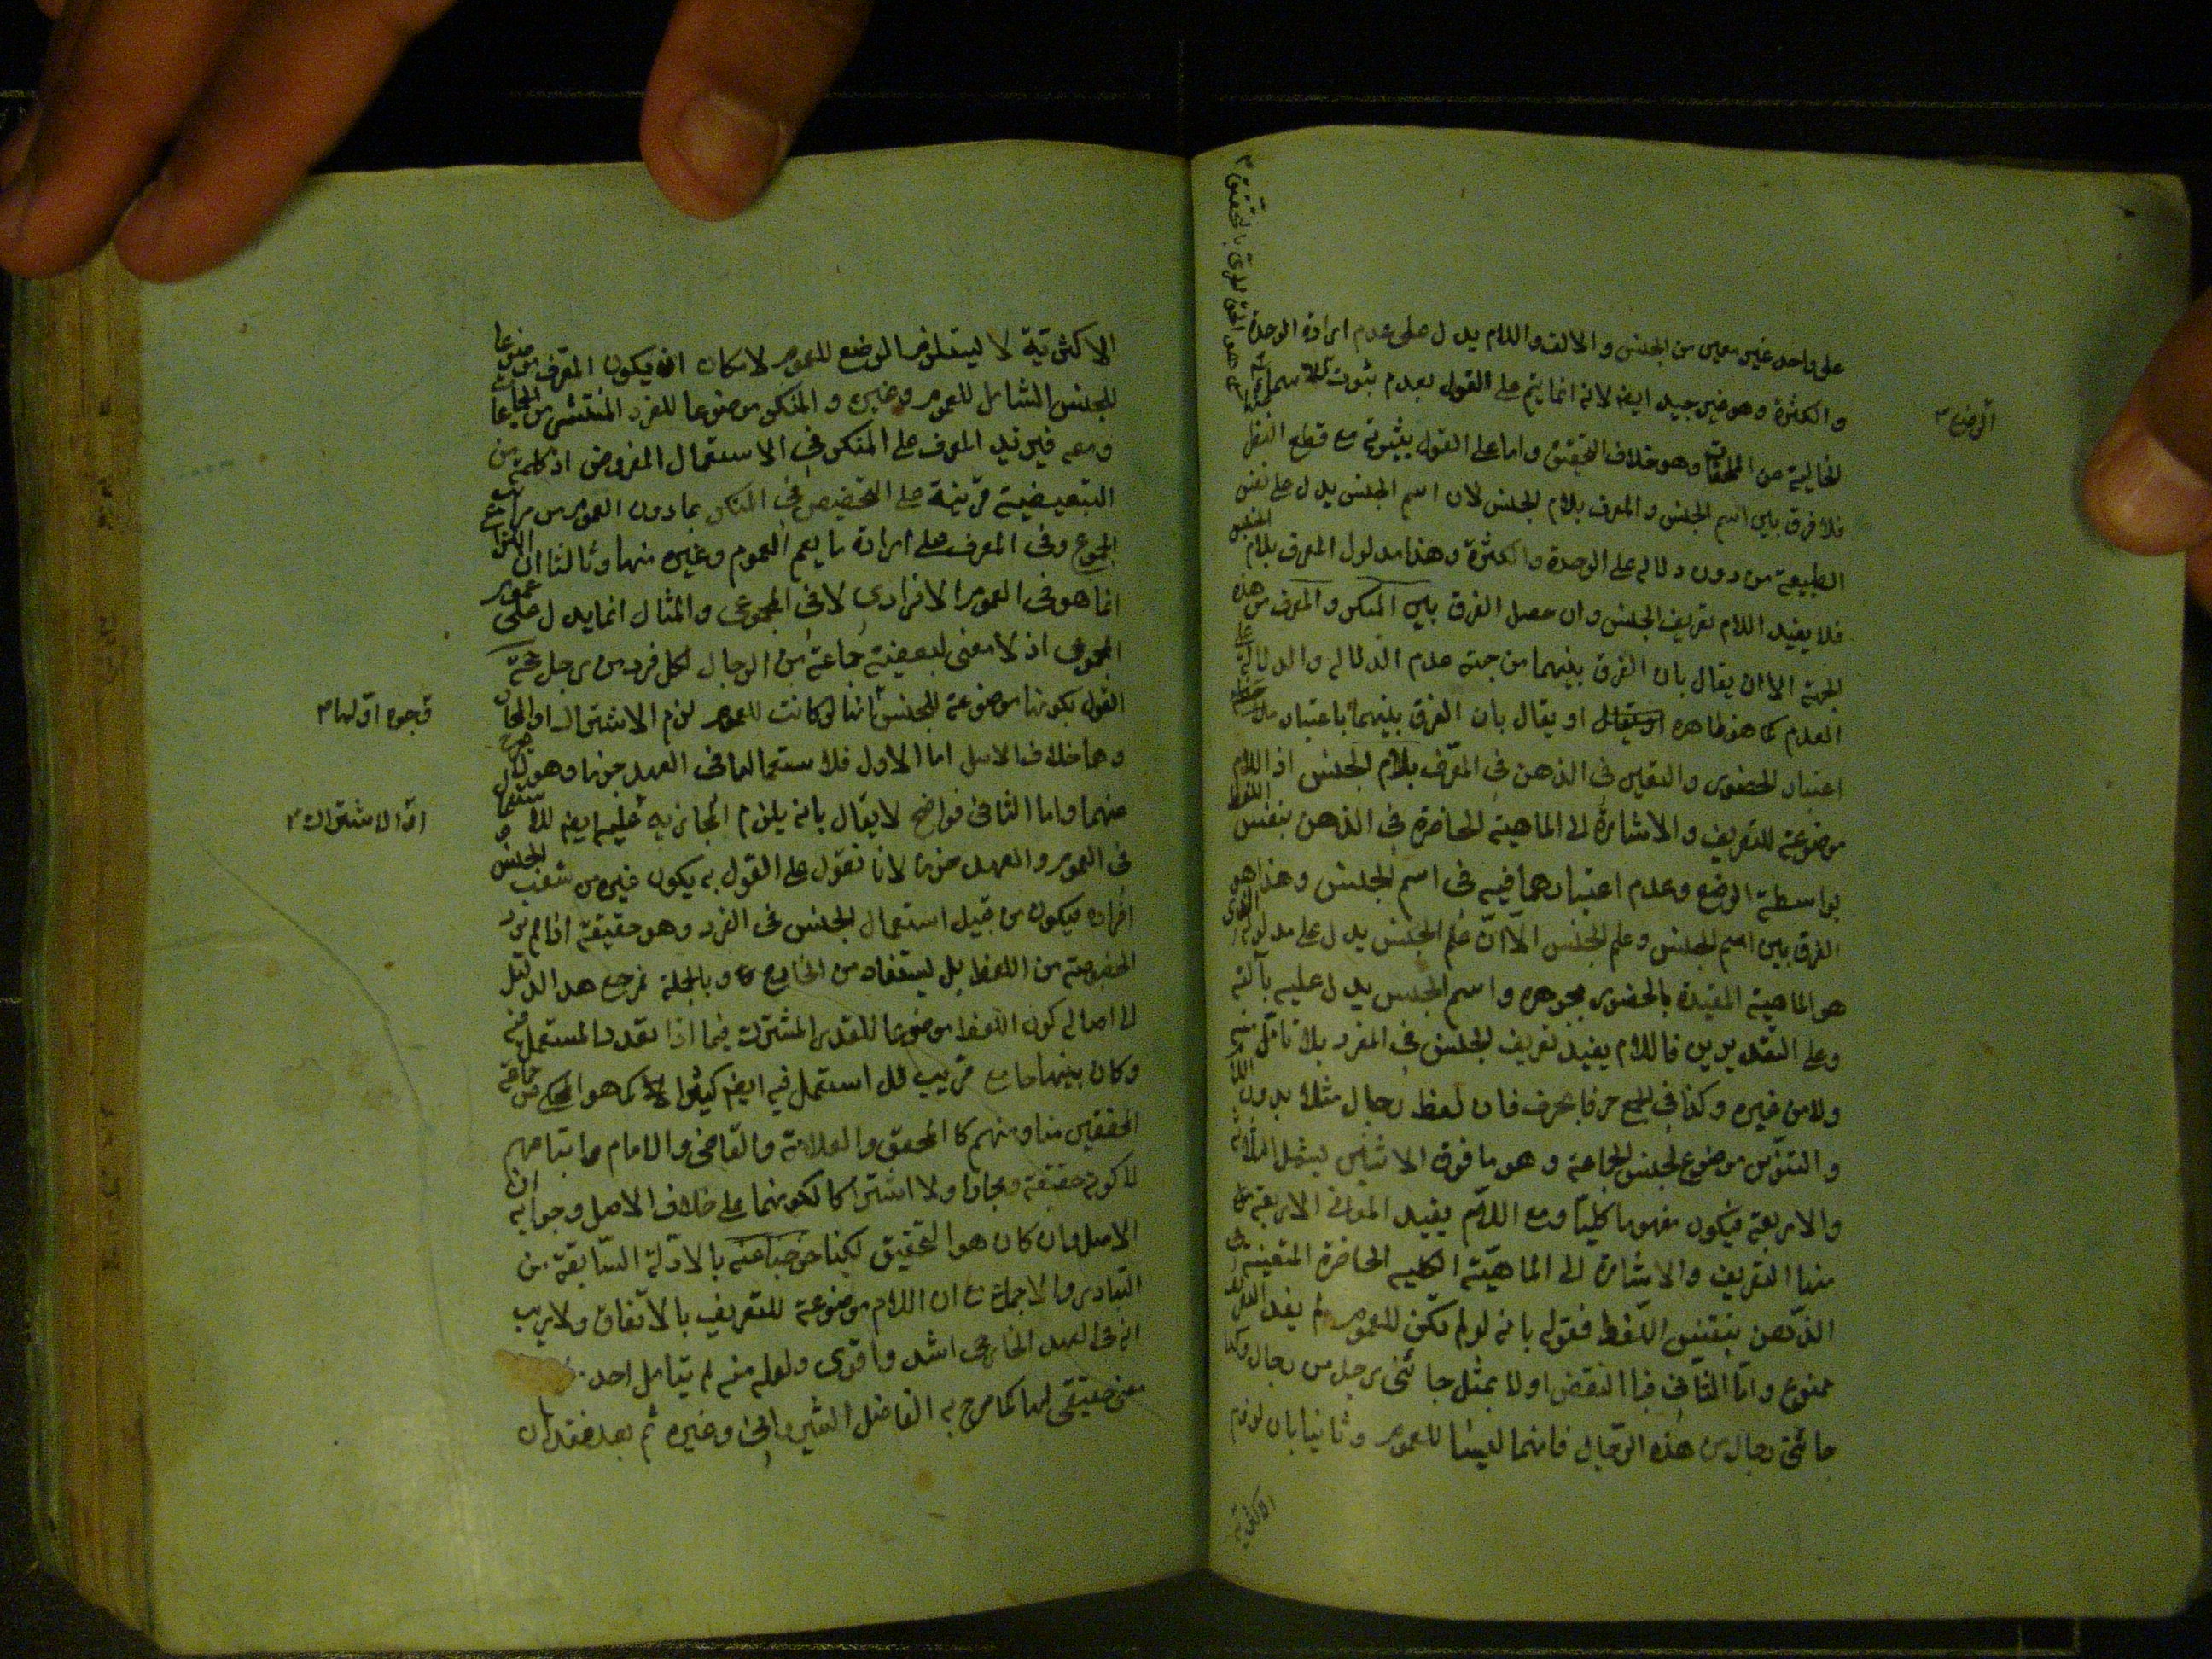 على واحد غير معين من الجنس والالف واللام يدل على عدم ارادة الوحدة
والكثرة وهو غير جيد ايضا لانه انما يتم على القول بعدم ثبوت
الخالية من الملحقات وهو خلاف التحقيق واما على القول بثبوته مع قطع النظر
فلا فرق بين اسم الجنس والمعرف بلام الجنس لان اسم الجنس يدل على نفس
الطبيعة من دون دلالة على الوحدة والكثرة وهذا مدلول المعرف بلام الجنس
فلا يفيد اللام تعريف الجنس وان حصل الفرق بين المنكر والمعرف من هذه
الجهة الا ان يقال بان الفرق بينهما من جهة عدم الدلالة والدلالة على
العدم كما هو ظاهره او يقال بان الفرق بينهما باعتبار
اعتبار الحضور والتعين في الذهن في المعرف بلام الجنس اذ اللام
موضوعة للتعريف والاشارة الى الماهية الحاضرة في الذهن بنفس اللفظ
بواسطة الوضع وعدم اعتبارهما فيه في اسم الجنس وهذا هو
الفرق بين اسم الجنس وعلم الجنس الّا انّ علم الجنس يدل على مدلوله الذى
هو الماهية المقيدة بالحضور بجوهره واسم الجنس يدل عليه بآلة
وعلى التقديرين فاللام يفيد تعريف الجنس في المفرد بلا تأمّل منه
ولا من غيره وكذا في الجمع حرفا بحرف فان لفظ رجال مثلا بدون اللام
والتنوين موضوع لجنس الجماعة وهو ما فوق الاثنين ليشمل الثلاثة
والاربعة فيكون مفهوما كليّا ومع اللام يفيد
منها التعريف والاشارة الى الماهيّة الكلية الحاضرة المتعينة في
الذّهن بنفس اللّفظ فقوله بانه لو لم تكن للعموم لم يفد
ممنوع وامّا الثاني فبالنقض اولا بمثل جائني رجل من رجال وكذا
جائني رجال من هذه الرّجال فانهما ليسا للعموم وثانيا بان لزوم
الاكثرية
الوضع
الاكثريّة لا يستلزم الوضع للعموم لامكان ان يكون المعرّف موضوعا
للجنس الشامل للعموم وغيره والمنكر موضوعا للفرد المنتشر من الجماعة
ومعه فيزيد المعرف على المنكر في الاستعمال المفروض اذ كلمة من
التبعيضية قرينة على التخصيص في المنكر بما دون العموم من مراتب
الجموع وفي المعرف على ارادة ما يعم العموم وغيره منها وثالثا ان
انما هو في العموم الافرادي لا في المجموعي والمثال انما يدل على عموم
المجموعي اذ لا معنى لبعضية جماعة من الرجال لكل فرد من رجل حجة
القول بكونها موضوعة للجنس انها لو كانت للعموم لزم الاشتراك او المجاز
وجوه اوّلها
وهما خلاف الاصل اما الاول فلاستعمالها في العهد جزما وهو
منهما واما الثاني فواضح لا يقال بانه يلزم المجازية عليه ايضا
اوّ الاشتراك
في العموم والعهد جزما لانا نقول على القول به يكون غيره من شعب الجنس
افراده فيكون من قبيل استعمال الجنس في الفرد وهو حقيقة اذا لم يرد
الخصوصية من اللفظ بل يستفاد من الخارج وبالجملة مرجع هذا الدليل
الى اصالة كون اللفظ موضوعا للقدر المشترك فيما اذا تعدد المستعمل فيه
وكان بينها جامع قريب قد استعمل فيه ايضا كثيرا كما هو المحكي عن جماعة
المحققين منا ومنهم كالمحقق والعلامة والقاضي والامام واتباعهم
لا كونه حقيقة ومجازا ولا اشتراكا لكونهما على خلاف الاصل وجوابه ان
الاصل وان كان هو التحقيق لكنا خرجنا عنه بالادّلة السّابقة من
التبادر والاجماع مع ان اللام موضوعة للتعريف بالاتفاق ولا ريب
انه في العهد الخارجي اشد واقوى ولعله منه لم يتامل احد
معنى حقيقي لها كما صرح به الفاضل الشيرواني وغيره ثم بعد فقد ان